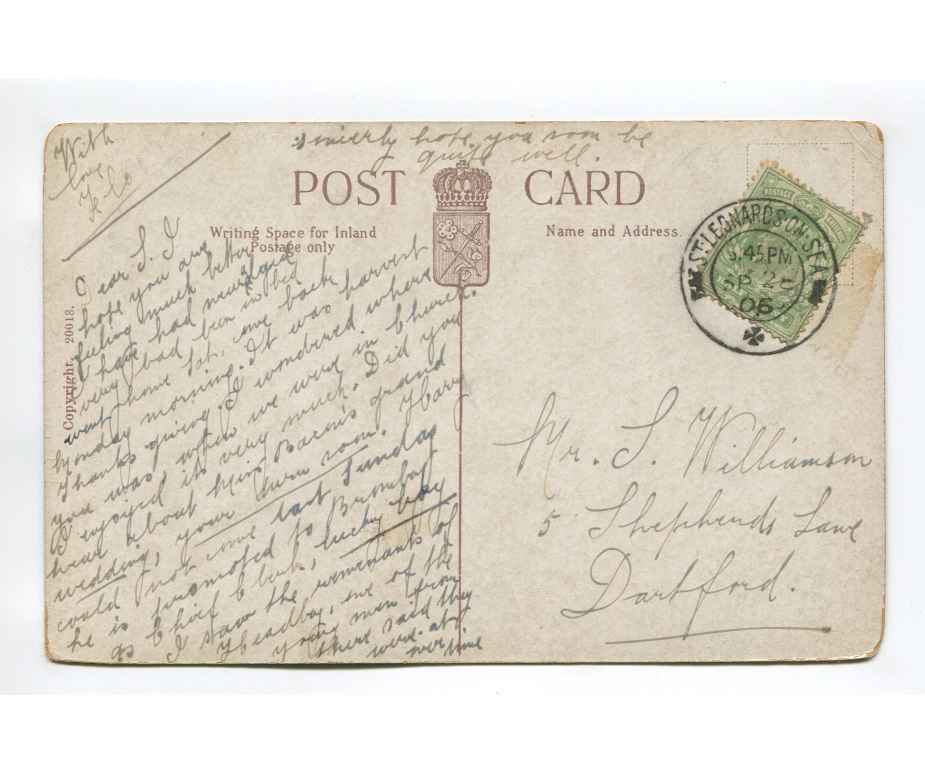 sincerly hope you soon be
quite well.
With
love
POST CARD
Writing Space for Inland
Postage only
Name and Address.
Copyright, 20013.
ST. LEONARDS-ON-SEA
3.45 PM
SP 2
05
POSTAGE
Dear S. I
hope you are
feeling much better
I have had neuralgia
very bad been in bed
went home Sat. came back
Monday morning. It was harvest
thanks giving. I wondered where
you was when we were in Church.
I enjoyed it very much. Did you
hear about Miss Bacon's grand
wedding, your turn soon. Harry
could not come last Sunday
he is promoted to Bromley
as Chief Clerk, lucky boy
I saw the remenants of
one of the
young men from
there said they
were at
over time
Mr. S. Williamson
5 Shepherds Lane
Dartford.